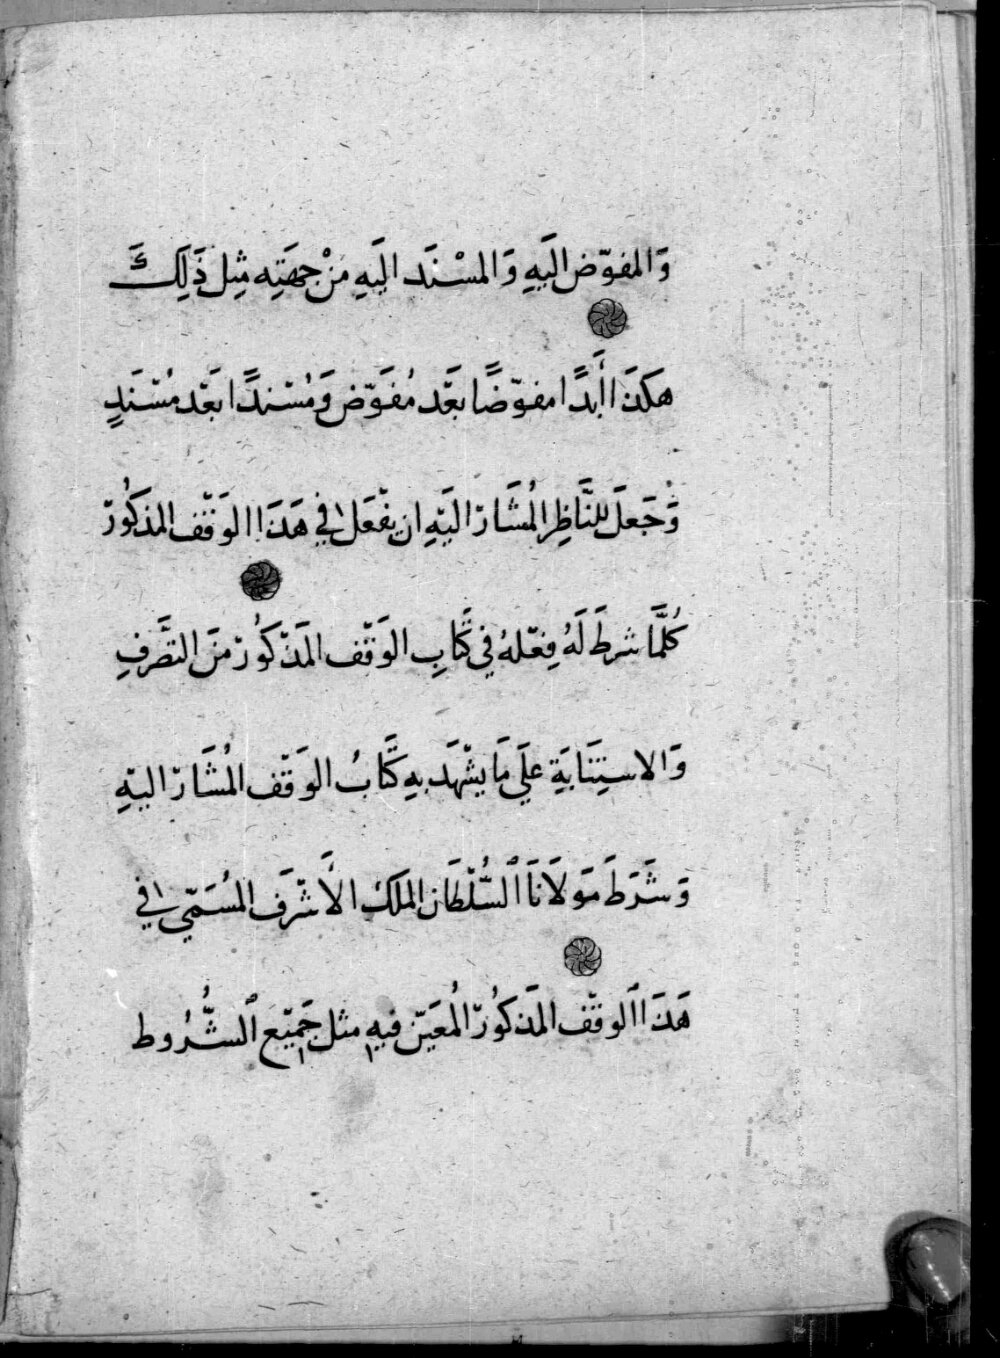 وَالمفوّض اليَهِ وَالمسْنَد اليَهِ مِنْ جِهَتِه مِثل ذَلِكَ
هكَذَا أَبَدًا مفوّضًا بَعْد مُفَوّض وَمُسْندًا بَعْد مُسْنَدٍ
وَجَعلَ للنَّاظِر المُشَار اليْهِ ان يفْعَل في هَذَا الوَقْف المذكُورْ
كُلَّمَا شرطَ لَهُ فِعْلهُ في كَابِ الوَقْف المَذْكُورْ منَ التصَّرفِ
وَالاستِنَابَةِ علَي مَا يشْهَد بهِ كتَابُ الوَقْف المُشَارْ اليْهِ
وَشَرَطَ مَولَانَا السُّلْطَان الملَك الأَشْرَف المُسَمّي في
هَذَا الوقْف المَذكُورْ المُعَيّن فيهِ مثل جَمِيْع الشُّرُوط